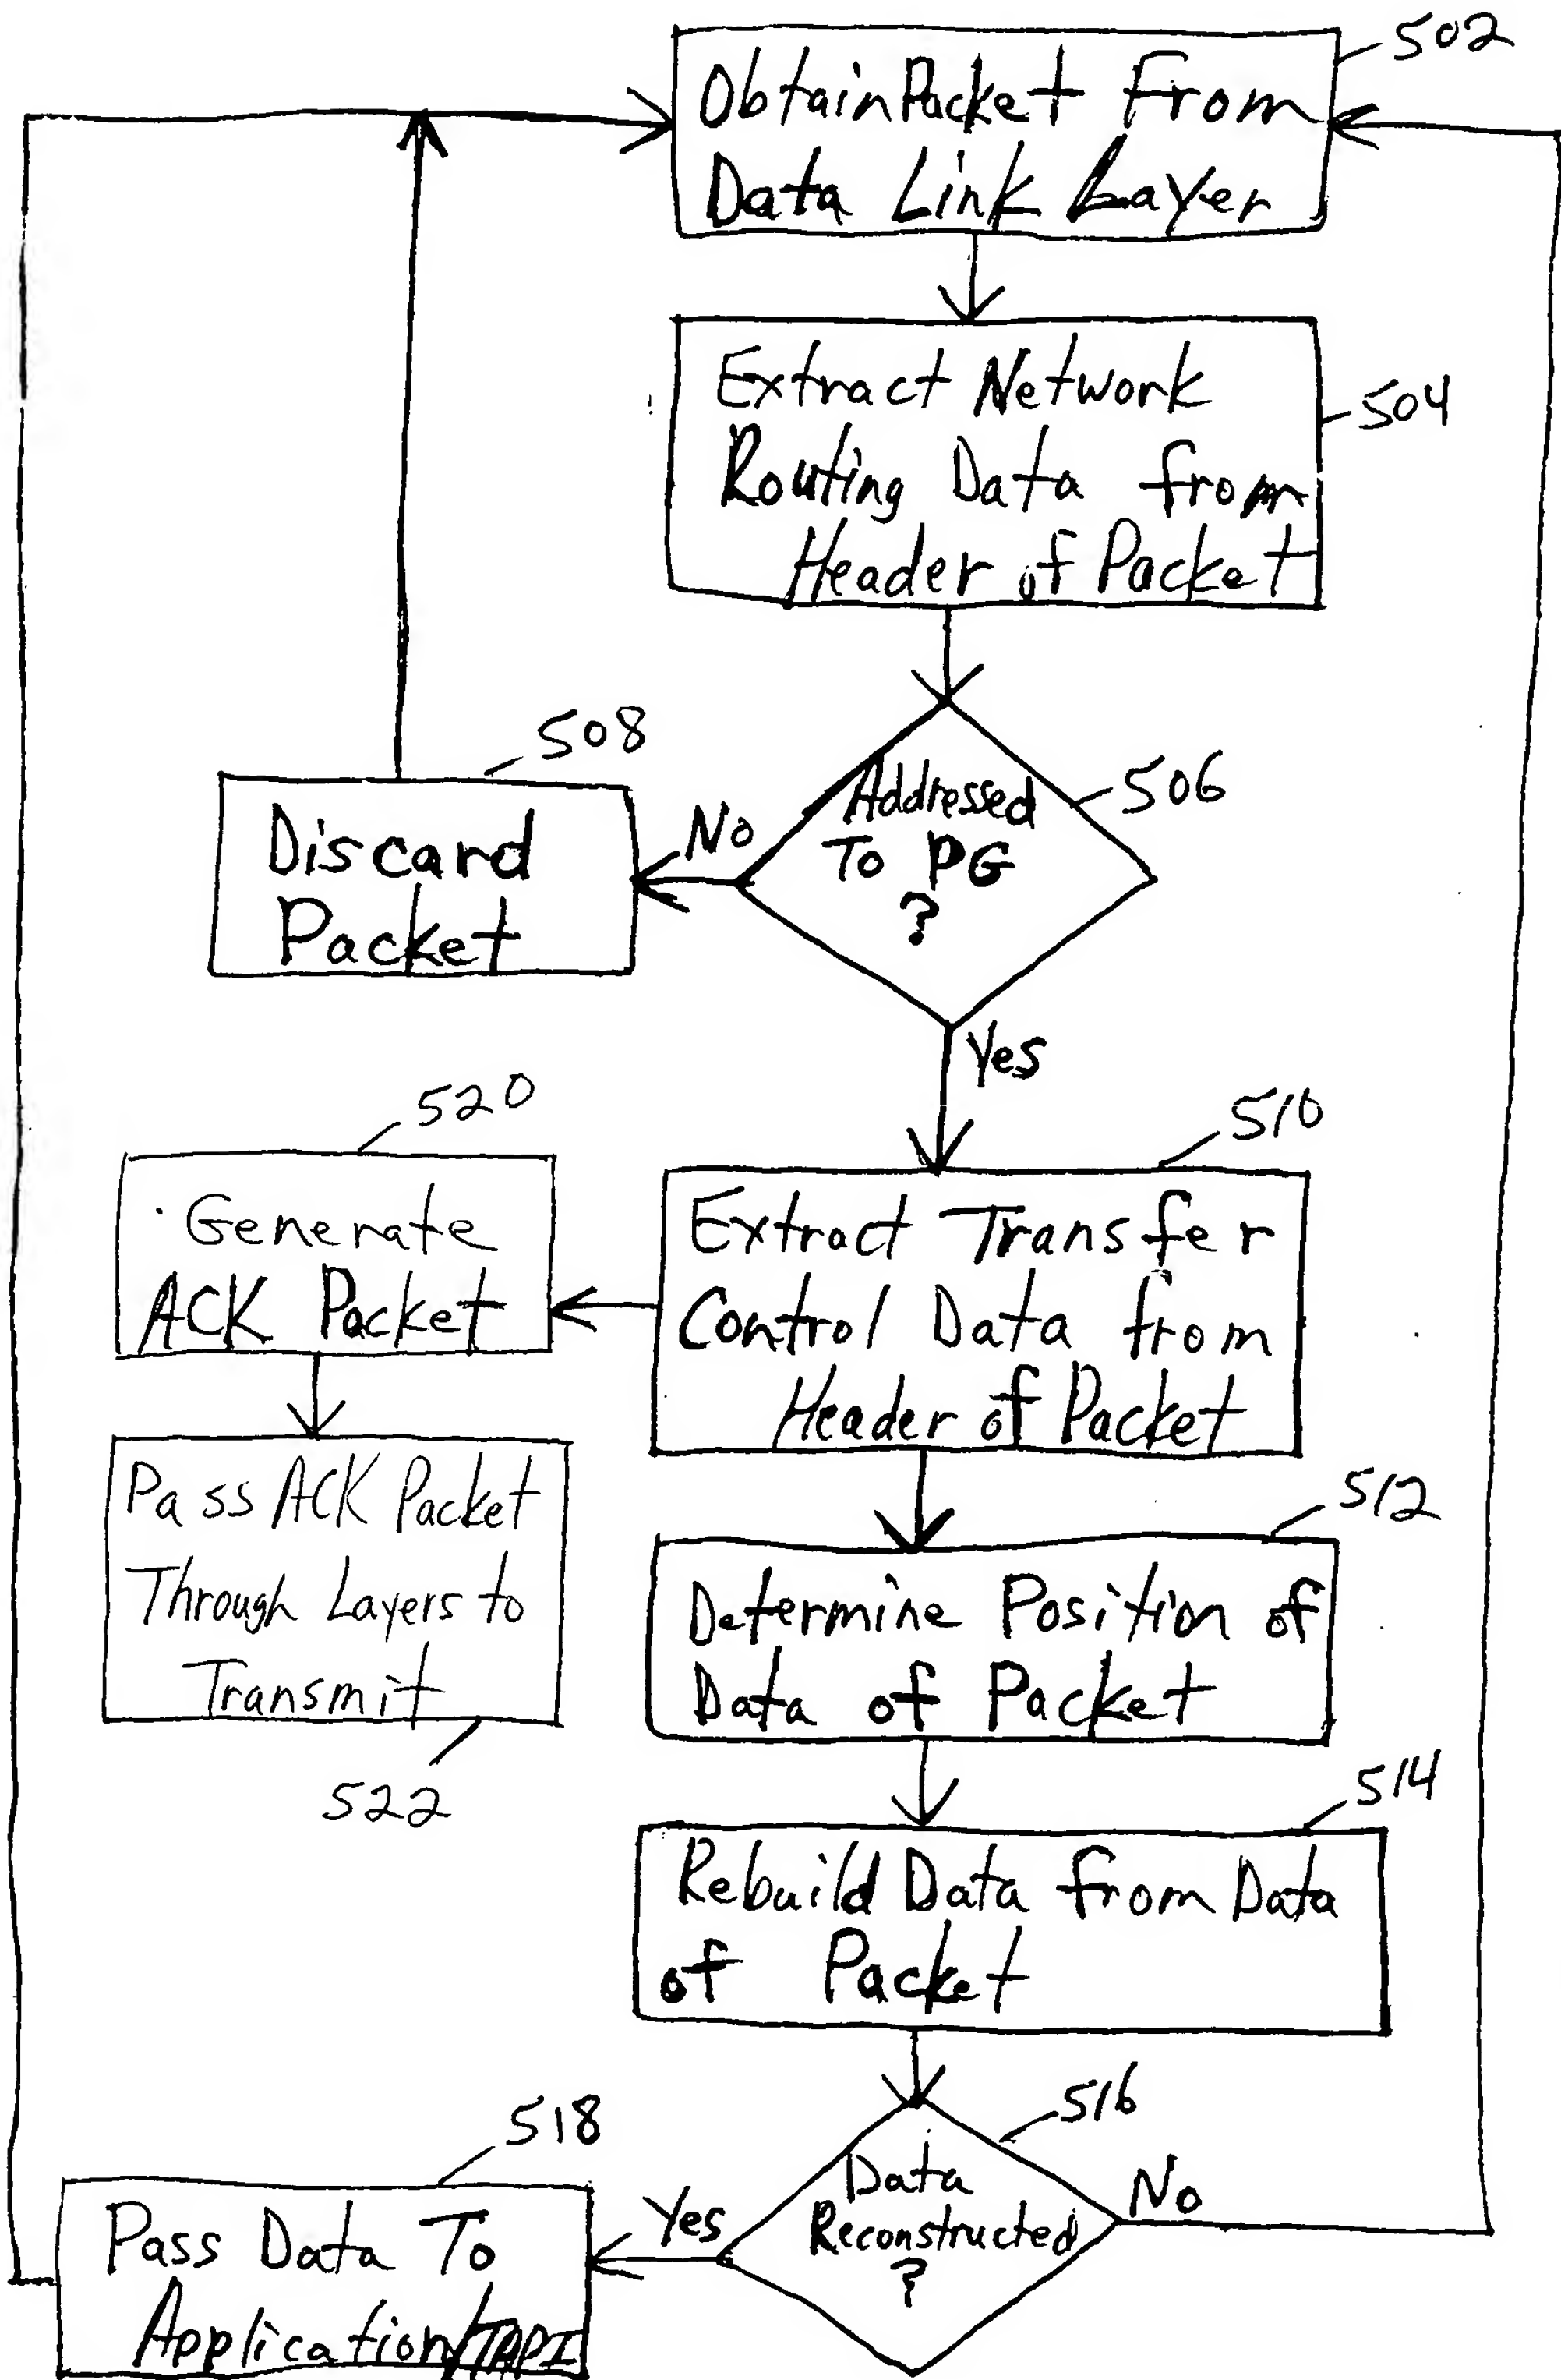 502
Obtain Packet From
Data Link Layer
Extract Network
Routing Data from
Header of Packet
504
Addressed
To PG
?
506
No
508
Discard
Packet
Yes
510
Extract Transfer
Control Data from
Header of Packet
520
Generate
ACK Packet
Pass ACK Packet
Through Layers to
Transmit
522
512
Determine Position of
Data of Packet
514
Rebuild Data from Data
of Packet
516
Data
Reconstructed
?
No
Yes
518
Pass Data To
Application/TAPI